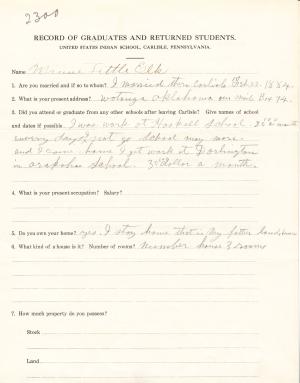 2300
RECORD OF GRADUATES AND RETURNED STUDENTS.
UNITED STATES INDIAN SCHOOL, CARLISLE, PENNSYLVANIA.
Name Minnie Little Elk
1. Are you married and if so to whom? I married Carlisle 1884.
2. What is your present address? Watonga Oklahoma Box 74.
3. Did you attend or graduate from any other schools after leaving Carlisle? Give names of school
and dates if possible. I was work at Haskell School. month
every day I just go school any more.
and I came home I got work at Darlington
in arapahoe School. 30 dollar a month.
4. What is your present occupation? Salary?
5. Do you own your home? yes. I stay home that is my father land
6. What kind of a house is it? Number of rooms? Number house 3 rooms
7. How much property do you possess?
Stock
Land